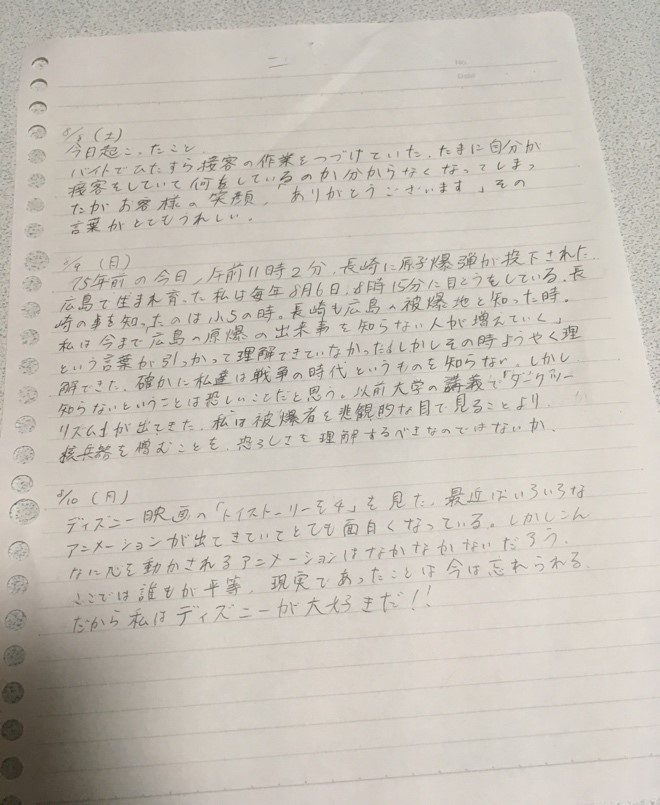 二
No.
Date
8/8 (土)
今日起こったこと
バイトでひたすら接客の作業をつづけていた。たまに自分が
接客をしていて何をしているのか分からなくなってしまっ
たがお客様の笑顔、「ありがとうございます」その
言葉がとてもうれしい。
8/9 (日)
75年前の今日、午前11時2分、長崎に原子爆弾が投下された
広島で生まれ育った私は毎年8月6日、8時15分に目とうもしている。長
崎の事を知ったのは小5の時。長崎も広島の被爆地と知った時。
私は今まで広島の原爆の出来事を知らない人が増えていく」
という言葉が引っかって理解できていなかった。しかしその時ようやく理
解できた。確かに私達は戦争の時代というものを知らない。しかし
知らないということは恐しいことだと思う。以前大学の講義で「ダークツー
リズム」が出てきた。私は被爆者を悲観的な目で見ることより
核兵器を憎むことを、恐ろしさを理解するべきなのではないか。
8/10 (月)
ディズニー映画の「トイストーリーを4」を見た。最近はいろいろな
アニメーションが出てきていてとても面白くなっている。しかしこん
なに心を動かされるアニメーションはなかなかないだろう。
ここでは誰もが平等、現実であったことは今は忘れられる。
だから私はディズニーが大好きだ!!